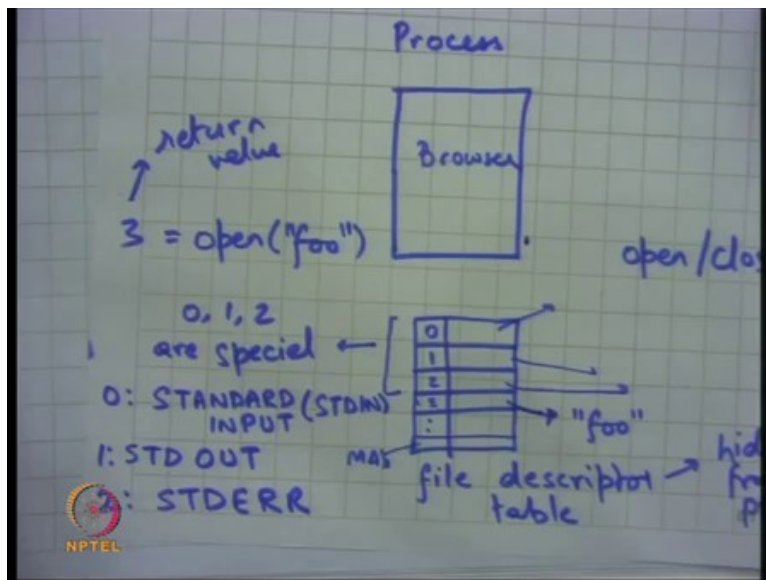 Process
return
value
Browser
3 = open("foo")
open/clos
0, 1, 2
are special
0
1
2
3
:
"foo"
0: STANDARD (STDIN)
INPUT
1: STD OUT
MAX
file descriptor
table
hid
fr
P
2: STDERR
NPTEL